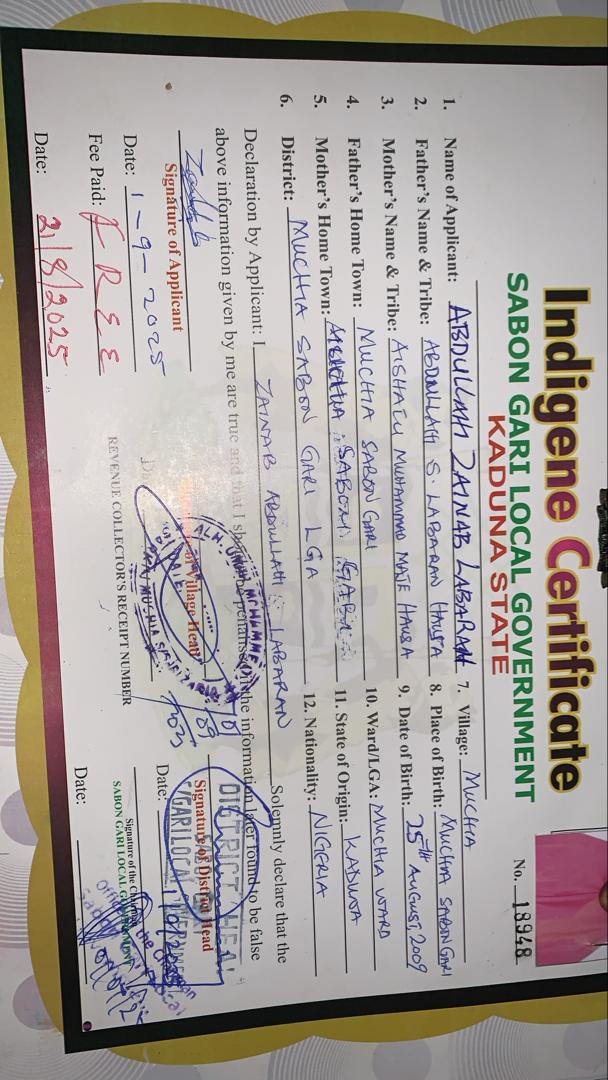 Indigene Certificate
SABON GARI LOCAL GOVERNMENT
KADUNA STATE
No. 18948
1. Name of Applicant: ABDULLAH ZAINAB LABARAN
2. Father's Name & Tribe: ABDULLAHI S. LABARAN HAUSA
3. Mother's Name & Tribe: AISHATU MUHAMMAD MAJE HAUSA
4. Father's Home Town: MUCHIA SABON GARI
5. Mother's Home Town: SABON GARI
6. District: MUCHIA SABON GARI LGA
7. Village: MUCHIA
8. Place of Birth: MUCHIA SABON GARI
9. Date of Birth: 25TH AUGUST, 2009
10. Ward/LGA: MUCHIA WARD
11. State of Origin: KADUNA
12. Nationality: NIGERIA
Declaration by Applicant: I ZAINAB ABDULLAHI LABARAN Solemnly declare that the
above information given by me are true and that I the information later found to be false
Signature of Applicant
Date: 1-9-2025
Fee Paid: FREE
Date: 21/8/2025
of Village Head
REVENUE COLLECTOR'S RECEIPT NUMBER
DISTRICT HEAD
Signature of District Head
Date:
Signature of the Chairman
SABON GARI LOCAL GOVERNMENT
Date: